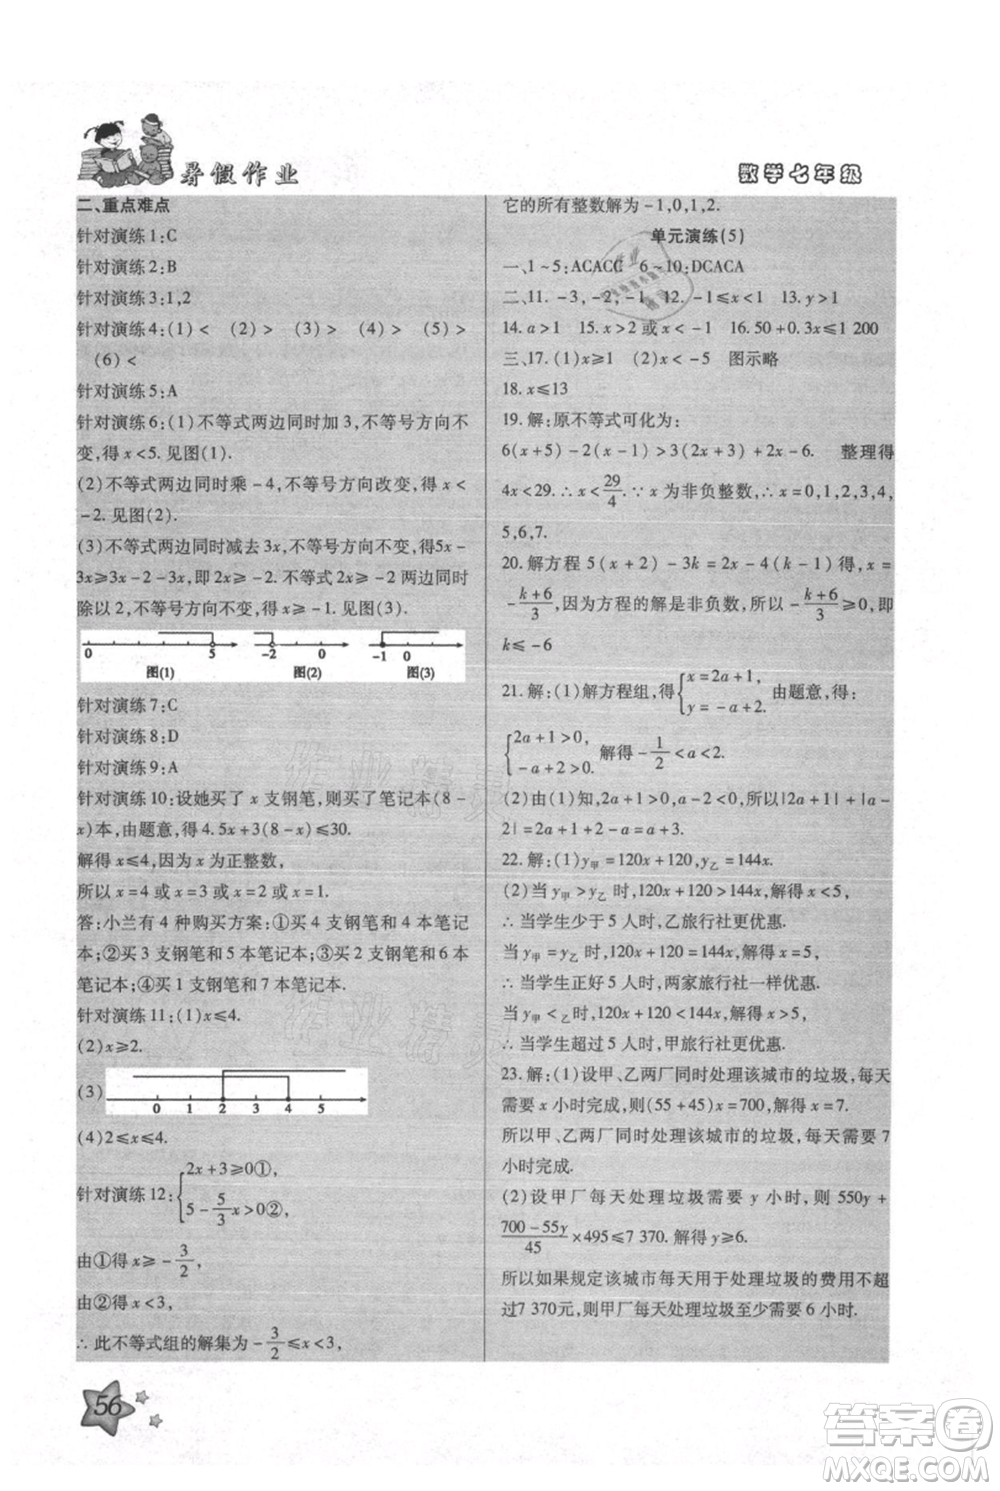 暑假作业
数学七年级
二、重点难点
针对演练1:C
针对演练2:B
针对演练3:1,2
针对演练4:(1)< (2)> (3)> (4)> (5)>
(6)<
针对演练5:A
针对演练6:(1)不等式两边同时加3,不等号方向不
变,得x<5.见图(1).
(2)不等式两边同时乘-4,不等号方向改变,得x<
-2.见图(2).
(3)不等式两边同时减去3x,不等号方向不变,得5x-
3x≥3x-2-3x,即2x≥-2,不等式两边同时
除以2,不等号方向不变,得x≥-1.见图(3).
0 5 -2 0 -1 0
图(1) 图(2) 图(3)
针对演练7:C
针对演练8:D
针对演练9:A
针对演练10:设她买了x支钢笔,则买了笔记本(8-
x)本,由题意,得4.5x+3(8-x)≤30.
解得x≤4,因为x为正整数,
所以x=4或x=3或x=2或x=1.
答:小兰有4种购买方案:①买4支钢笔和4本笔记
本;②买3支钢笔和5本笔记本;③买2支钢笔和6
本笔记本;④买1支钢笔和7本笔记本.
针对演练11:(1)x≤4.
(2)x≥2.
(3) 0 1 2 3 4 5
(4)2≤x≤4.
针对演练12:{2x+3≥0①,
5-5/3x>0②,
由①得x≥-3/2,
由②得x<3,
∴此不等式组的解集为-3/2≤x<3,
56
它的所有整数解为-1,0,1,2.
单元演练(5)
一、1~5:ACACC 6~10:DCACA
二、11.-3,-2,-1 12.-1≤x<1 13.y>1
14.a>1 15.x>2或x<-1 16.50+0.3x≤1 200
三、17.(1)x≥1 (2)x<-5 图示略
18.x≤13
19.解:原不等式可化为:
6(x+5)-2(x-1)>3(x-1)+2x-6. 整理得
4x<29.∴x<29/4.∵x为非负整数,∴x=0,1,2,3,4,
5,6,7.
20.解方程5(x+2)-3k=2x-4(k-1),得x=
-(k+6)/3,因为方程的解是非负数,所以-(k+6)/3≥0,即
k≤-6
21.解:(1)解方程组,得{x=2a+1, y=-a+2. 由题意,得:
{2a+1>0, -a+2>0. 解得-1/2<a<2.
(2)由(1)知2a+1>0,a-2<0.所以|2a+1|+|a-
2|=2a+1+2-a=a+3.
22.解:(1)y甲=120x+120,y乙=144x.
(2)当y甲>y乙时,120x+120>144x,解得x<5,
∴当学生少于5人时,乙旅行社更优惠.
当y甲=y乙时,120x+120=144x,解得x=5,
∴当学生正好5人时,两家旅行社一样优惠.
当y甲<乙时,120x+120<144x,解得x>5,
∴当学生超过5人时,甲旅行社更优惠.
23.解:(1)设甲、乙两厂同时处理该城市的垃圾,每天
需要x小时完成,则(55+45)x=700,解得x=7.
所以甲、乙两厂同时处理该城市的垃圾,每天需要7
小时完成.
(2)设甲厂每天处理垃圾需要y小时,则550y+
(700-55y)/45×495≤7 370.解得y≥6.
所以如果规定该城市每天用于处理垃圾的费用不超
过7 370元,则甲厂每天处理垃圾至少需要6小时.
作业精灵
作业精灵
答案卷
MXQE.COM